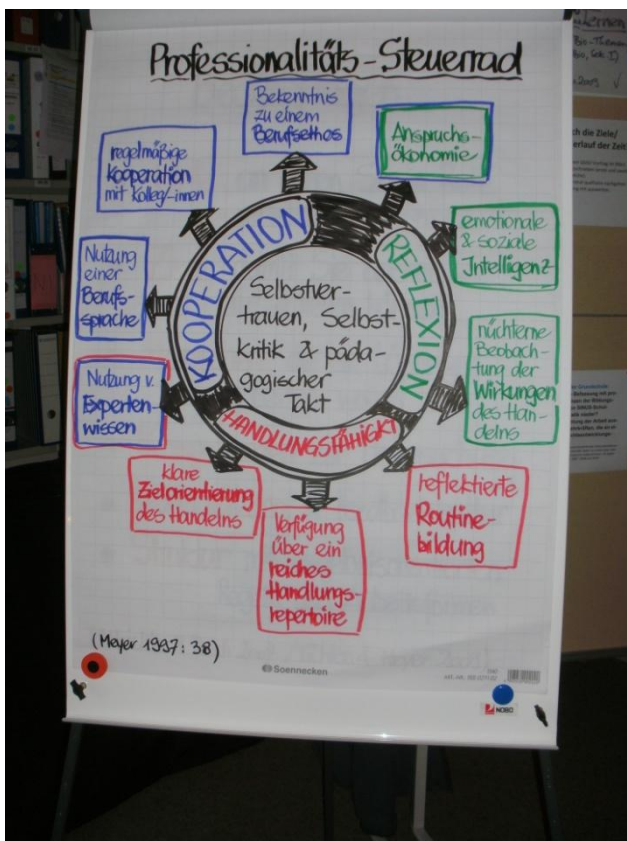 Professionalitäts-Steuerrad
Bekenntnis
zu einem
Berufsethos
Anspruchs-
ökonomie
regelmäßige
Kooperation
mit Kolleg/-innen
emotionale
& soziale
Intelligenz
Nutzung
einer
Berufs-
sprache
nüchterne
Beobach-
tung der
Wirkungen
des Han-
delns
Nutzung v.
Experten-
wissen
KOOPERATION
REFLEXION
HANDLUNGSFÄHIGKT
Selbstver-
trauen, Selbst-
kritik & päda-
gogischer
Takt
klare
Zielorientierung
des Handelns
Verfügung
über ein
reiches
Handlungs-
repertoire
reflektierte
Routine-
bildung
(Meyer 1997: 38)
Soennecken
NOBO
ch die Ziele/
erlauf der Zeit